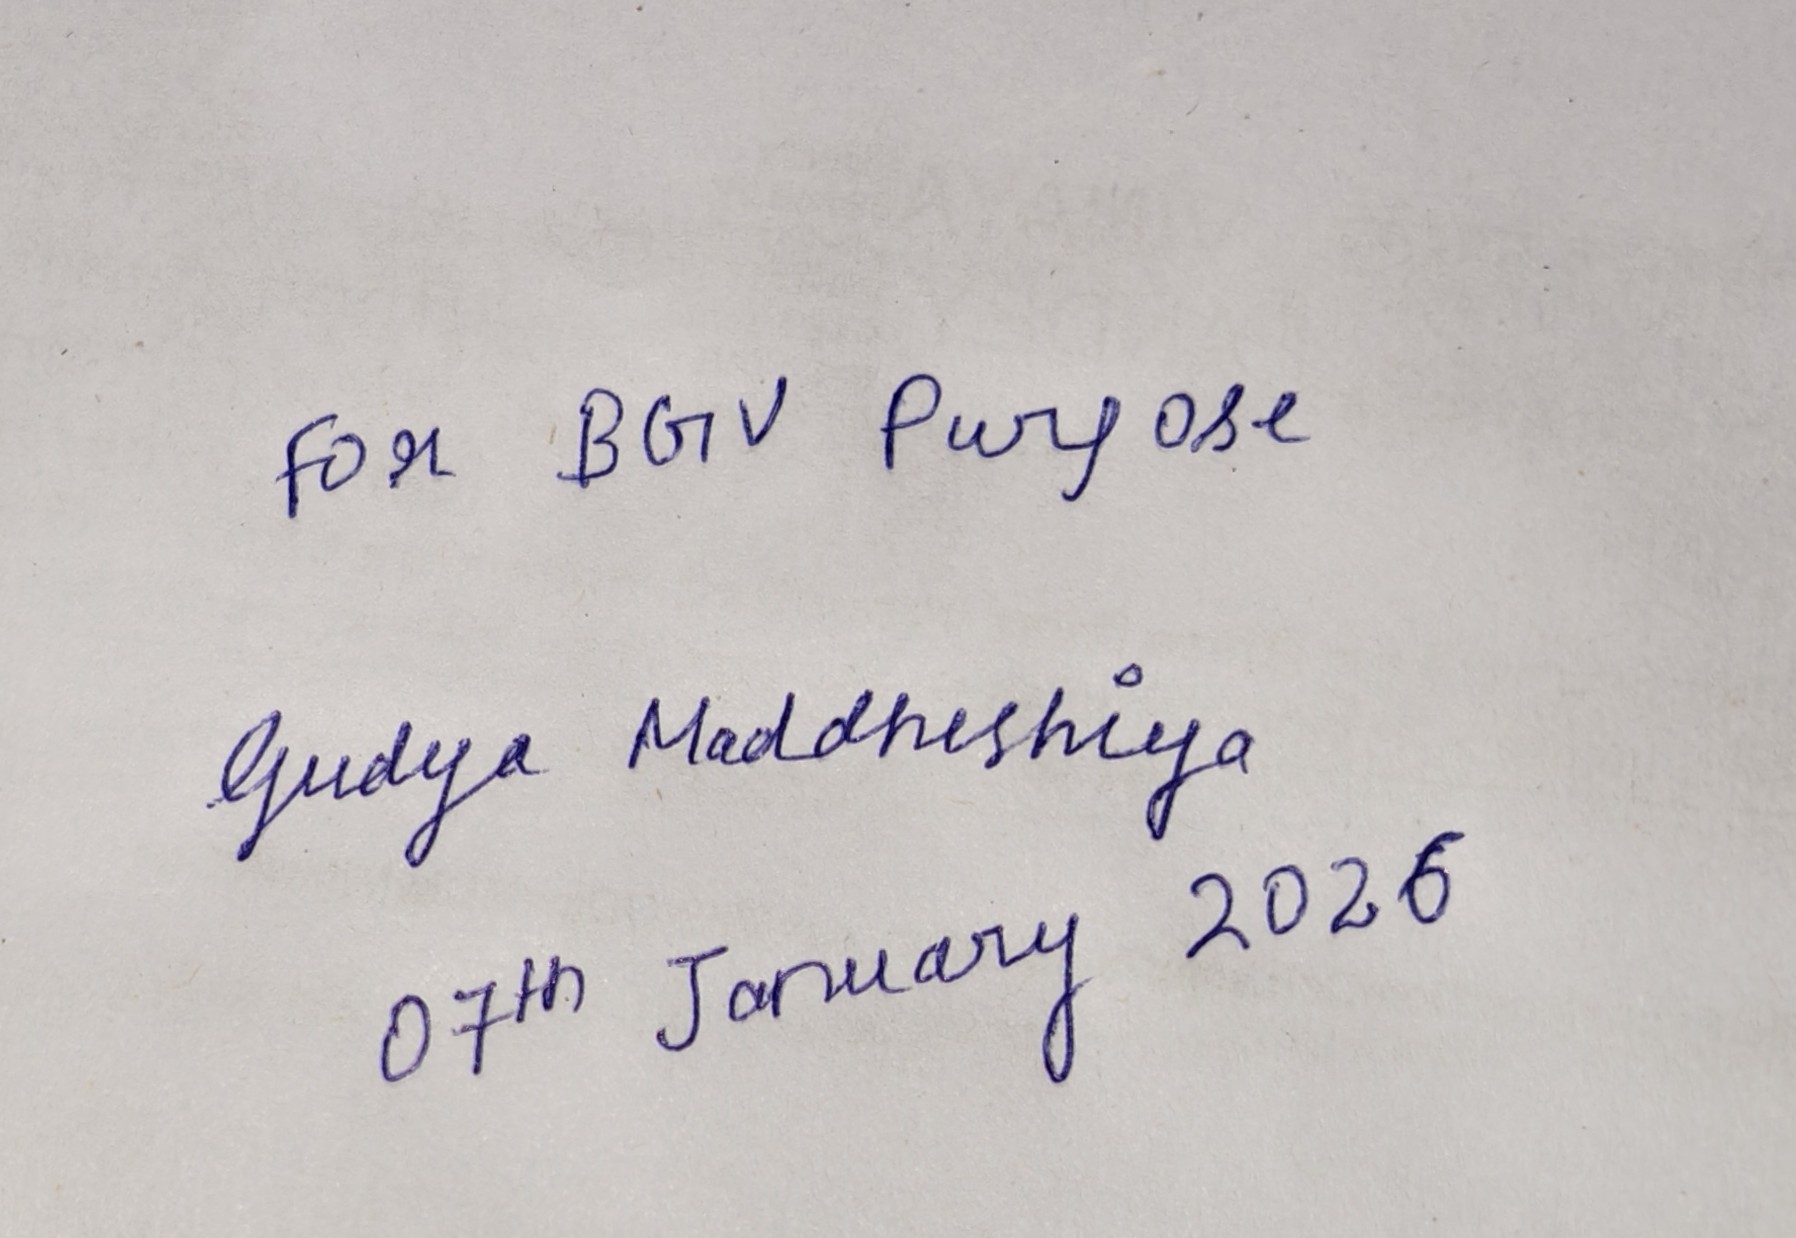 For BGV Purpose
Gudya Maddheshiya
07th January 2026